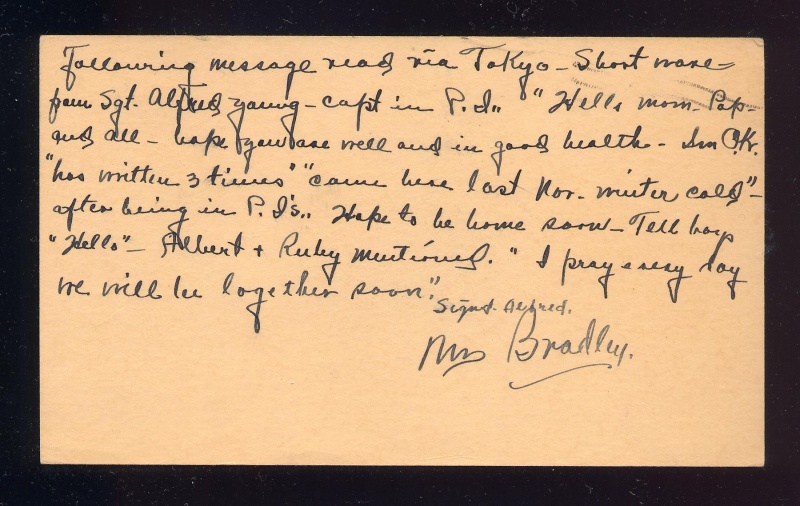 Following message read via Tokyo - Short wave -
from Sgt. Alfred Young - capt in P.I.. "Hello mom - Pop -
and all - hope you are well and in good health - Im O.K.
"has written 3 times" "came here last Nov. winter cold" -
after being in P.I's.. Hope to be home soon - Tell boys
"Hello" - Albert + Ruby mentioned. "I pray every day
we will be together soon."
Signd. Alfred.
Mrs Bradley.